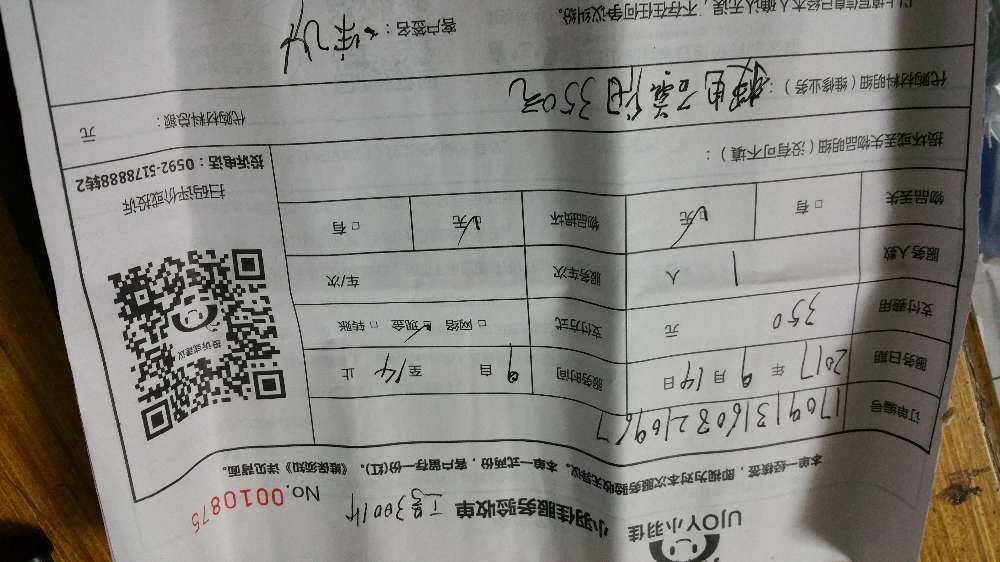 UJOY小羽佳
小羽佳服务验收单 工号30014 No.0010875
本单一经核签，即视为对本次服务验收无异议。本单一式两份，客户留存一份(红)。《维保须知》详见背面。
订单编号 1709131608210967
服务日期 2017 年 9 月 14 日 服务时间 自 9 至 14 止
支付费用 350 元 支付方式 □ 网络 ☑ 现金 □ 转账
服务人数 1 人 服务车次 车/次
物品丢失 □ 有 ☑ 无 物品损坏 ☑ 无 □ 有
投诉或建议
扫码评价或投诉
投诉电话：0592-5178888转2
损坏或丢失物品明细（没有可不填）：
代购材料总额： 元
代购材料明细（维修业务）：350元
客户签名：
以上填写信息已经本人确认无误，不存在任何争议纠纷。